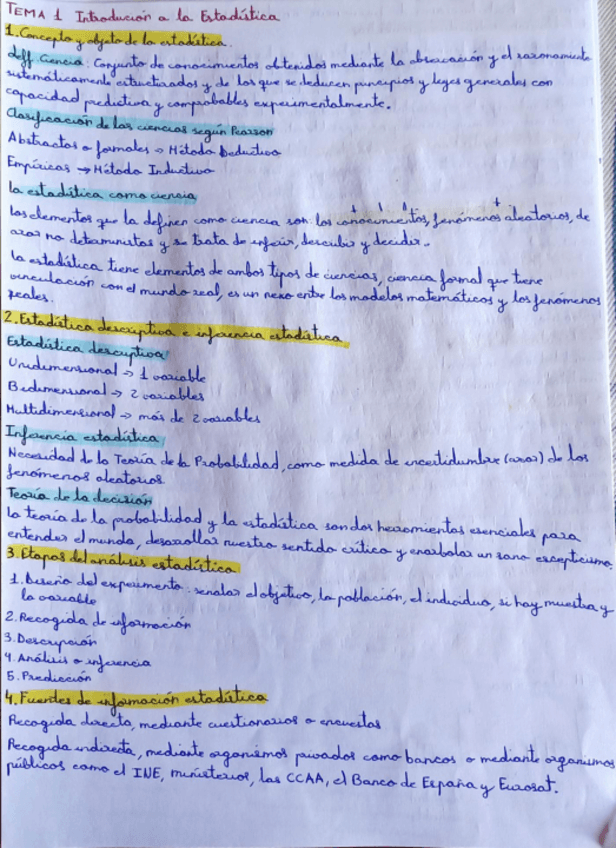 TEMA 1 Introducción a la Estadística
1. Concepto y objeto de la estadística.
deff. Ciencia: Conjunto de conocimientos obtenidos mediante la observación y el razonamiento
sistemáticamente estructurados y de los que se deducen principios y leyes generales con
capacidad predictiva y comprobables experimentalmente.
Clasificación de las ciencias según Pearson
Abstractas o formales → Método Deductivo
Empíricas → Método Inductivo
La estadística como ciencia
Los elementos que la definen como ciencia son: los conocimientos, fenómenos aleatorios, de
azar no deterministas y se trata de inferir, descubrir y decidir.
La estadística tiene elementos de ambos tipos de ciencias, ciencia formal que tiene
vinculación con el mundo real, es un nexo entre los modelos matemáticos y los fenómenos
reales.
2. Estadística descriptiva e inferencia estadística
Estadística descriptiva
Unidimensional → 1 variable
Bidimensional → 2 variables
Multidimensional → más de 2 variables
Inferencia estadística
Necesidad de la Teoría de la Probabilidad, como medida de incertidumbre (azar) de los
fenómenos aleatorios
Teoría de la decisión
La teoría de la probabilidad y la estadística son dos herramientas esenciales para
entender el mundo, desarrollar nuestro sentido crítico y enarbolar un sano escepticismo
3. Etapas del análisis estadístico
1. Diseño del experimento: señalar el objetivo, la población, el individuo, si hay muestra y
la variable
2. Recogida de información
3. Descripción
4. Análisis o inferencia
5. Predicción
4. Fuentes de información estadística
Recogida directa, mediante cuestionarios o encuestas
Recogida indirecta, mediante organismos privados como bancos o mediante organismos
públicos como el INE, ministerios, las CCAA, el Banco de España y Eurosat.